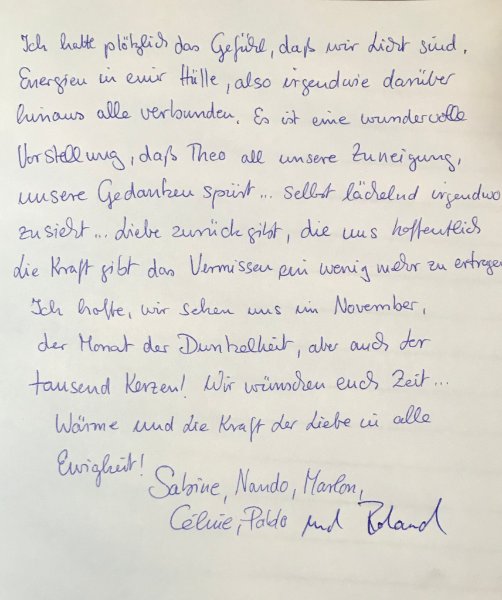 Ich hatte plötzlich das Gefühl, daß wir Licht sind,
Energien in einer Hülle, also irgendwie darüber
hinaus alle verbunden. Es ist eine wundervolle
Vorstellung, daß Theo all unsere Zuneigung,
unsere Gedanken spürt... selbst lächelnd irgendwo
zusieht... Liebe zurück gibt, die uns hoffentlich
die Kraft gibt das Vermissen ein wenig mehr zu ertragen
Ich hoffe, wir sehen uns im November,
der Monat der Dunkelheit, aber auch der
tausend Kerzen! Wir wünschen euch Zeit...
Wärme und die Kraft der Liebe in alle
Ewigkeit!
Sabine, Nando, Marlon,
Céline, Pablo und Roland